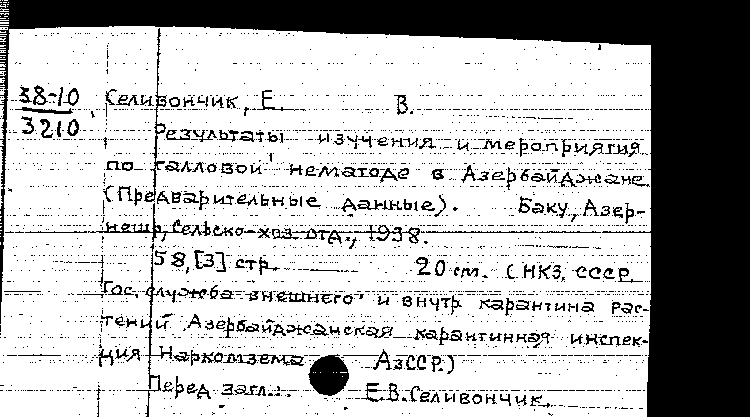 38-10 Селивончик, Е. В.
3210
Результаты изучения и мероприятия
по галловой нематоде в Азербайджане
(Предварительные данные). Баку, Азер-
нешр, Сельско-хоз. отд., 1938.
58, [3] стр. 20 см. (НКЗ. СССР.
Гос. служба внешнего и внутр карантина рас-
тений Азербайджанская карантинная инспек-
ция Наркомзема АзССР.)
Перед загл.: Е.В. Селивончик.